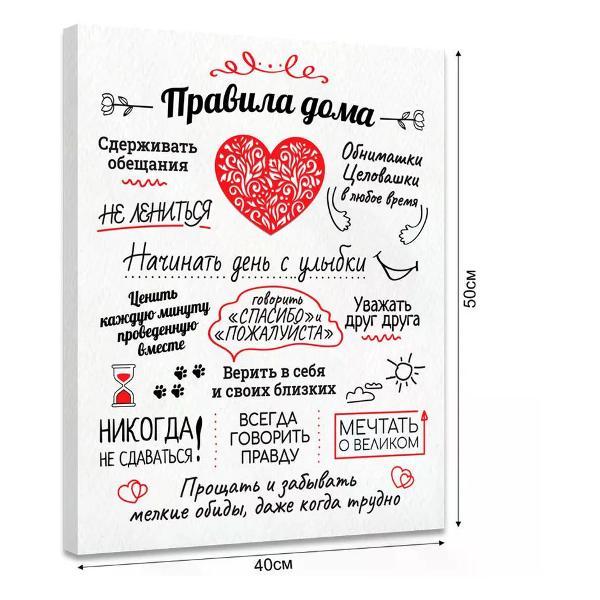 Правила дома
Сдерживать
обещания
Обнимашки
Целовашки
в любое время
НЕ ЛЕНИТЬСЯ
Начинать день с улыбки
Ценить
каждую минуту
проведенную
вместе
говорить
«СПАСИБО» и
«ПОЖАЛУЙСТА»
Уважать
друг друга
Верить в себя
и своих близких
НИКОГДА
НЕ СДАВАТЬСЯ!
ВСЕГДА
ГОВОРИТЬ
ПРАВДУ
МЕЧТАТЬ
О ВЕЛИКОМ
Прощать и забывать
мелкие обиды, даже когда трудно
50см
40см